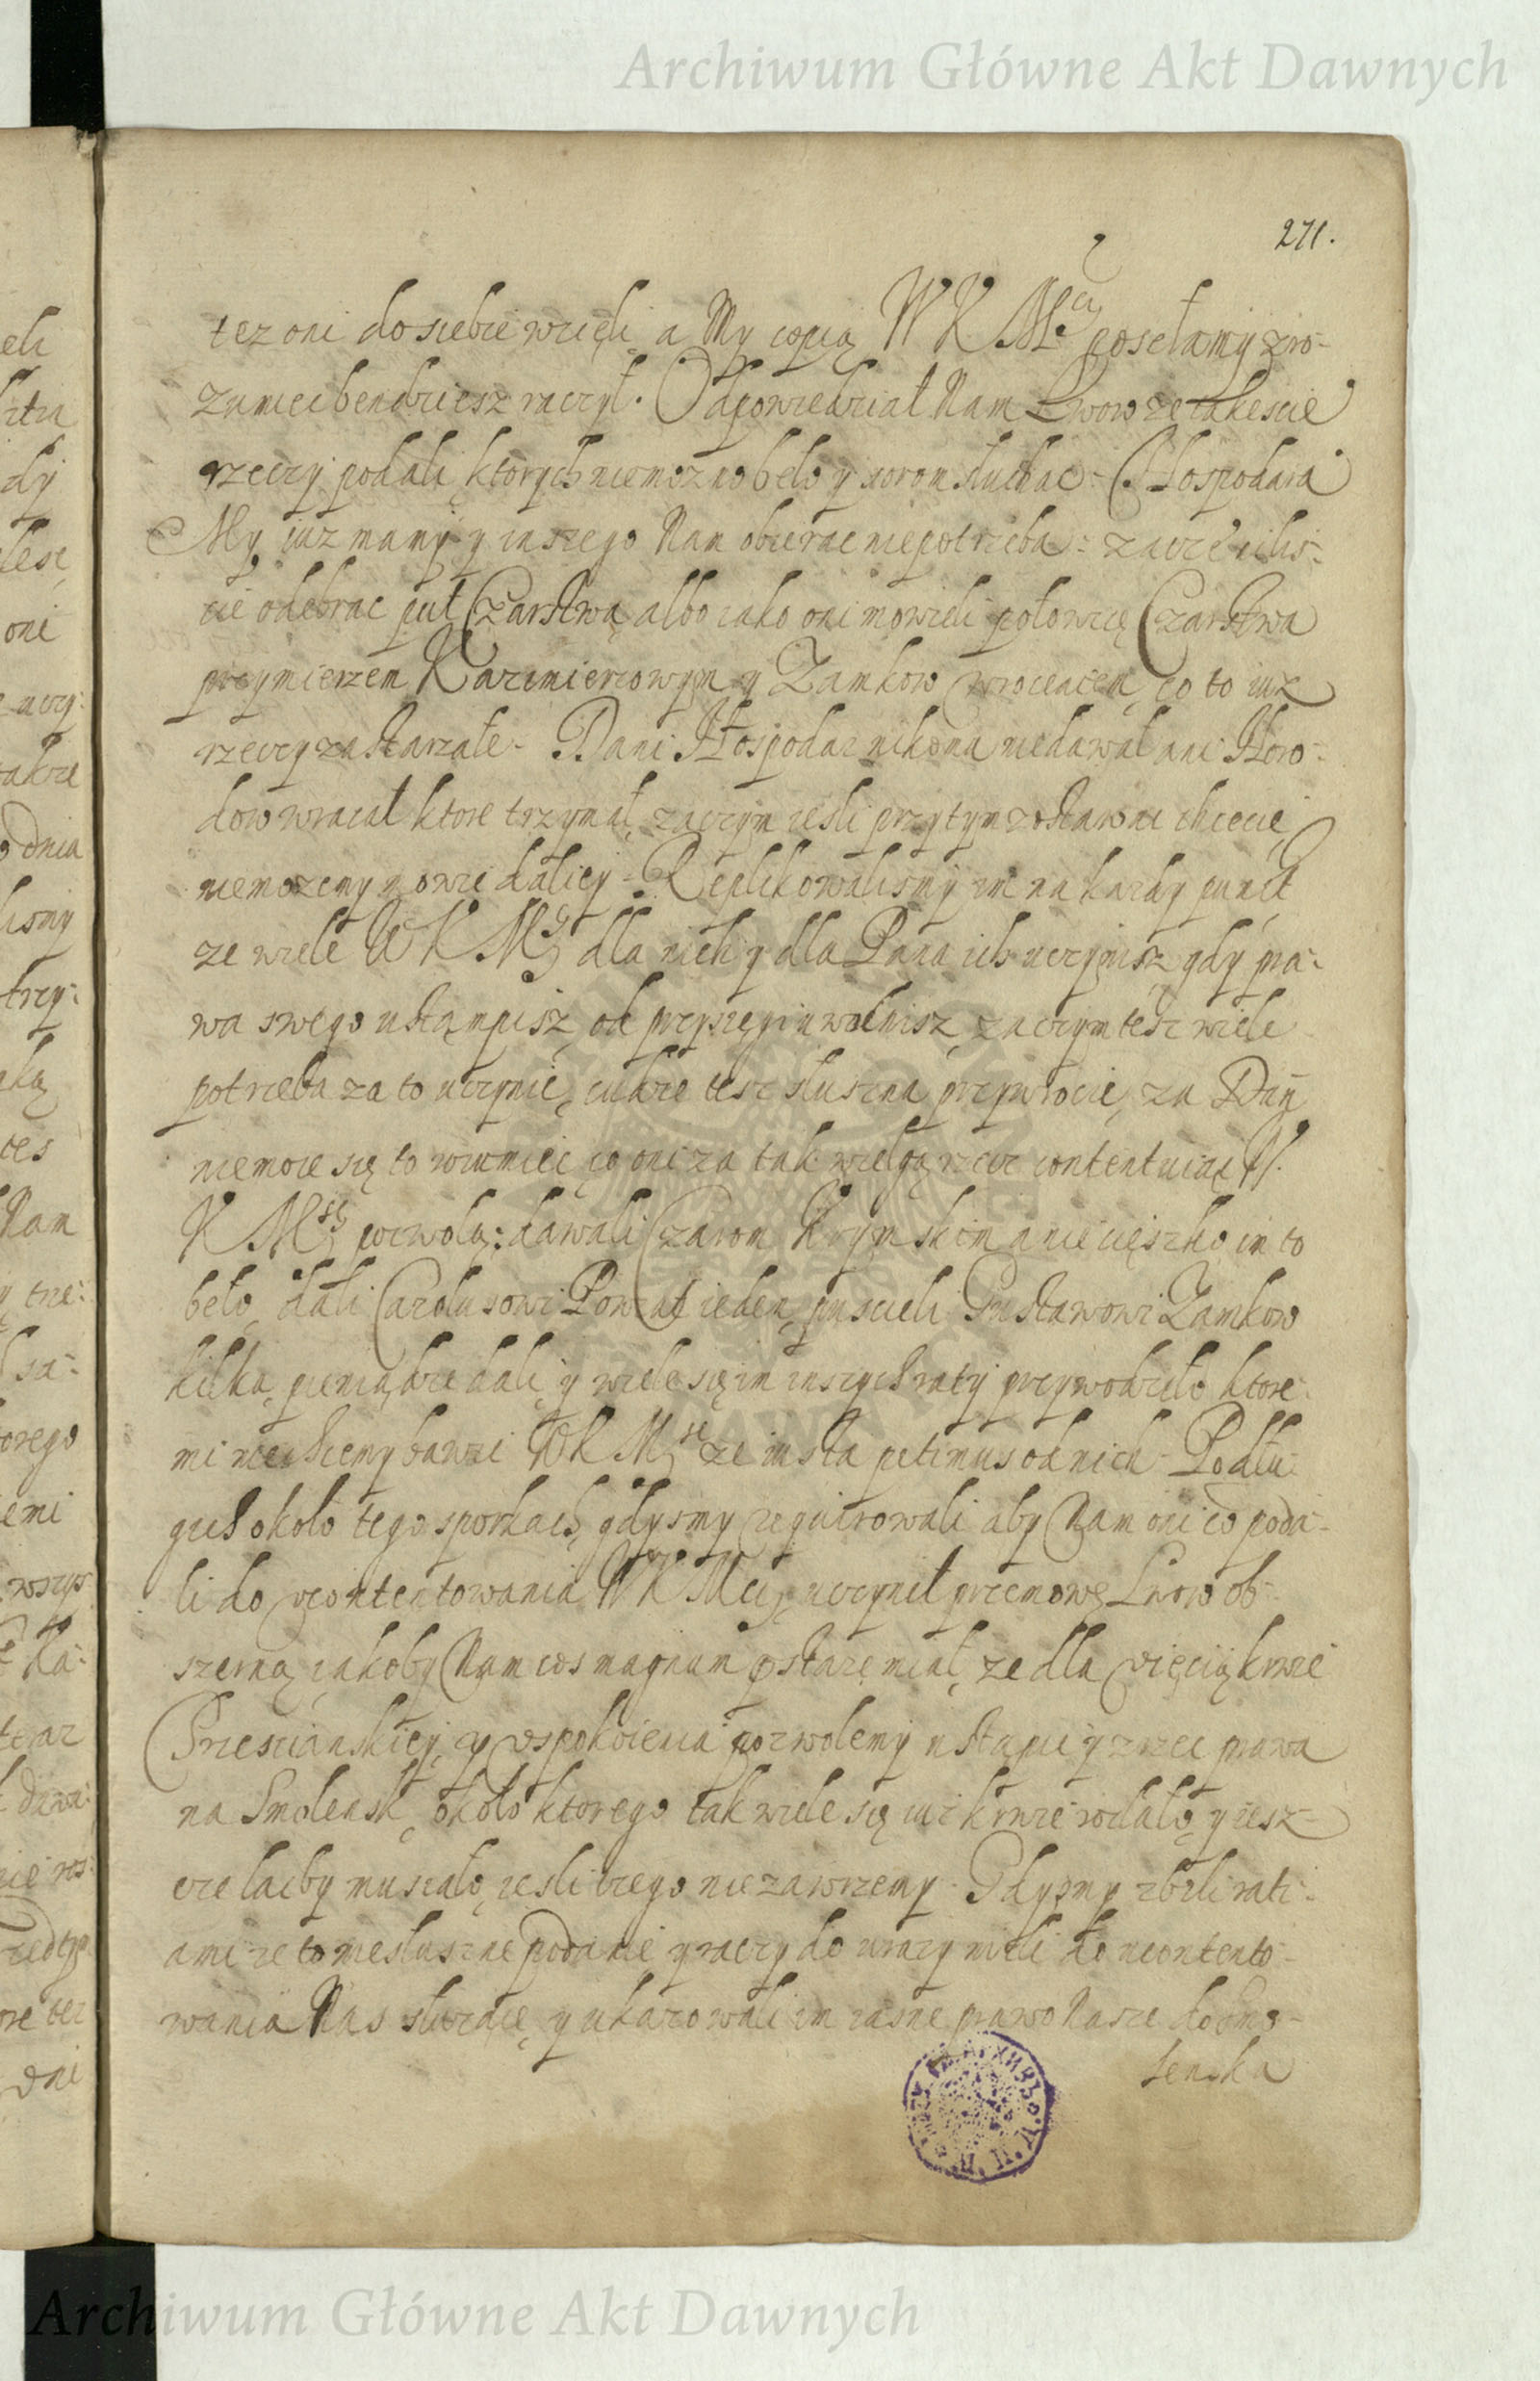 Archiwum Główne Akt Dawnych
271.
tez oni do siebie wzięli, a My copią W K Mci posełamy zro-
zumiec bendziesz raczył. Odpowiedział Nam Lwow ze takescie
rzeczy podali, ktorych niemozno beło y sorom słuchac. Hospodara
My iuz mamy y inszego Nam obierac niepotrzeba: zacz
cie odebrac puł Czarstwa, albo iako oni mowieli połowicę Czarstwa
przymierzem Kazimierzowym y Zamkow wroceniem, co to iuz
rzeczy zastarzałe. Dani Hospodar nikomu niedawał ani Horo-
dow wracał ktore trzymał, zaczym iesli przytym zostawac chcecie,
niemozemy mowic daliey. Replikowalismy im na kazdy punct
ze wiele W K M dla nich y dla Pana ich uczynisz gdy pra-
wa swego ustąmpisz, od przysięgi uwolnisz, zaczym tesz wiele
potrzeba za to uczynic, cudze tesz słuszna przywrocic, za Dań
niemoze się to rozumiec, co oni za tak wielgą rzecz contentuiąc W.
K Msc pozwolą: dawali Czarom Krymskim a nie cięszko im to
beło, dali Carolusowi Powiat ieden, puscieli Gustawowi Zamkow
kilka, pieniądze dali, y wiele się im inszych raty przywodziło ktore-
mi niechcemy bawic W K M ze iusta petimus od nich. Po dłu-
gich około tego sporkach, gdysmy requirowali aby Nam oni co poda-
li do ucontentowania W K Mci, uczynił przemowę Lwow ob-
szerną, iakoby Nam cos magnum miał, ze dla krwie
Chrzescianskiey, y uspokoienia pozwolemy ustąpic y zrzec prawa
na Smolensk, około ktorego tak wiele się iuz krwie rozlało, y iesz-
cze lacby musiało, iesli tego nie zawrzemy. Gdysmy zbili rati-
ami ze to niesłuszne podanie y raczy do urazy nizli do ucontento-
wania Nas słuzące, y ukazowali im iasne prawo Nasze do Smo-
lenska
Archiwum Główne Akt Dawnych